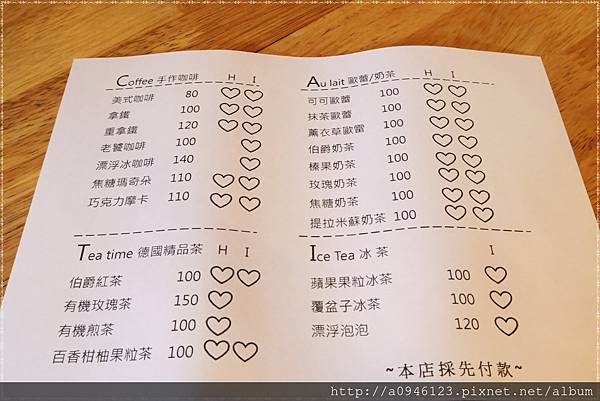 Coffee 手作咖啡 H I
美式咖啡 80
拿鐵 100
重拿鐵 120
老饕咖啡 100
漂浮冰咖啡 140
焦糖瑪奇朵 110
巧克力摩卡 110
Au lait 歐蕾/奶茶 H I
可可歐蕾 100
抹茶歐蕾 100
薰衣草歐雷 100
伯爵奶茶 100
榛果奶茶 100
玫瑰奶茶 100
焦糖奶茶 100
提拉米蘇奶茶 100
Tea time 德國精品茶 H I
伯爵紅茶 100
有機玫瑰茶 150
有機煎茶 100
百香柑柚果粒茶 100
Ice Tea 冰 茶 I
蘋果果粒冰茶 100
覆盆子冰茶 100
漂浮泡泡 120
~本店採先付款~
http://a0946123.pixnet.net/album